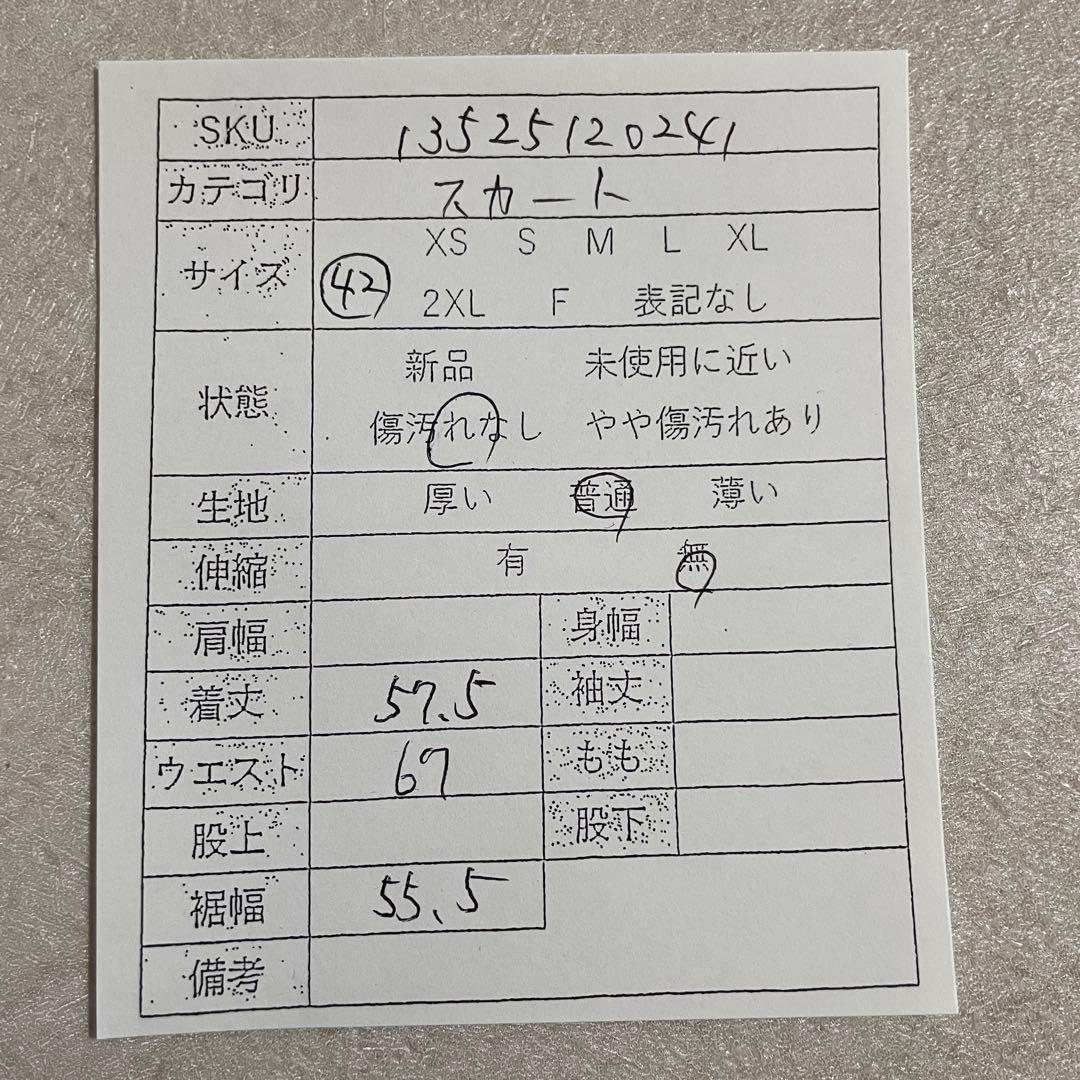 SKU 13525120241
カテゴリ スカート
サイズ XS S M L XL
42 2XL F 表記なし
状態 新品 未使用に近い
傷汚れなし やや傷汚れあり
生地 厚い 普通 薄い
伸縮 有 無
肩幅 身幅
着丈 57.5 袖丈
ウエスト 67 もも
股上 股下
裾幅 55.5
備考